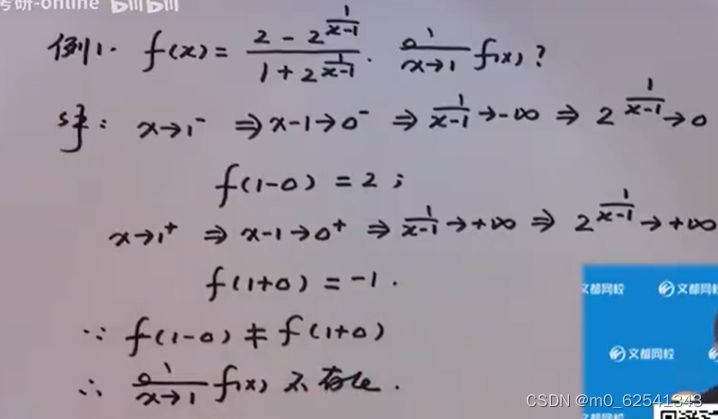 考研-online bilibili
例1. f(x) = \frac{2 - 2^{\frac{1}{x-1}}}{1 + 2^{\frac{1}{x-1}}}. \lim_{x→1} f(x)?
解: x→1⁻ ⇒ x-1→0⁻ ⇒ \frac{1}{x-1}→-∞ ⇒ 2^{\frac{1}{x-1}}→0
f(1-0) = 2;
x→1⁺ ⇒ x-1→0⁺ ⇒ \frac{1}{x-1}→+∞ ⇒ 2^{\frac{1}{x-1}}→+∞
f(1+0) = -1.
∵ f(1-0) ≠ f(1+0)
∴ \lim_{x→1} f(x) 不存在.
文都网校 文都网校
文都网校
文都网校
CSDN @m0_62541343